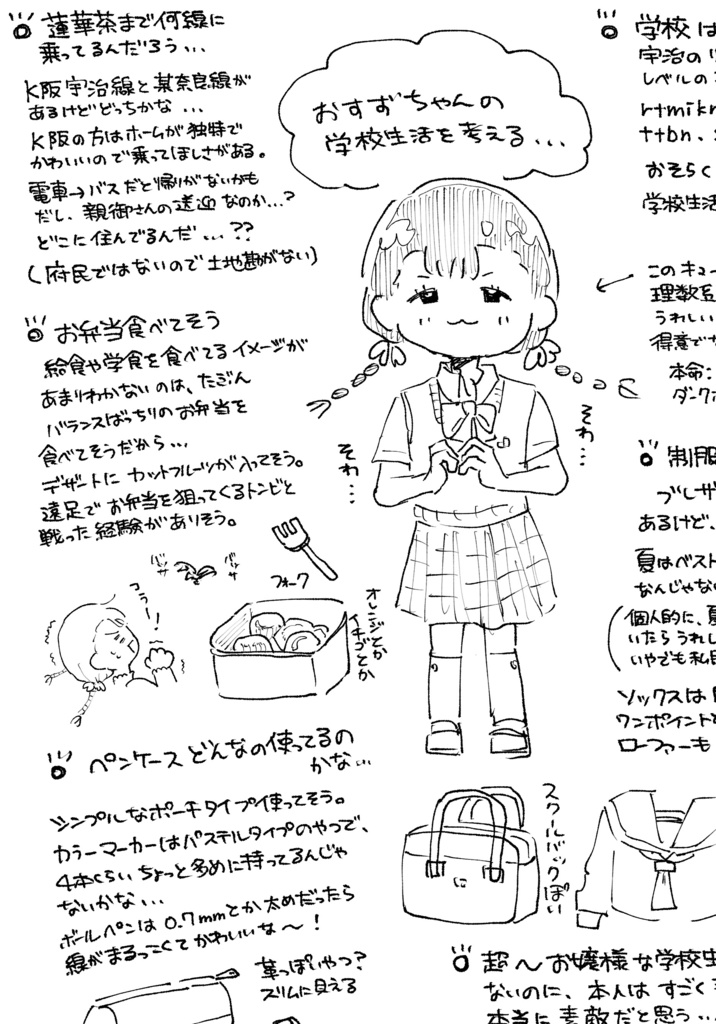 おすずちゃんの
学校生活を考える...
蓮華茶まで何線に
乗ってるんだろう...
K阪宇治線と某奈良線が
あるけどどっちかな ...
K阪の方はホームが独特で
かわいいので乗ってほしさがある。
電車→バスだと帰りがないかも
だし、親御さんの送迎なのか...?
どこに住んでるんだ...??
(府民ではないので土地勘がない)
お弁当食べてそう
給食や学食を食べてるイメージが
あまりわかないのは、たぶん
バランスばっちりのお弁当を
食べてそうだから...
デザートにカットフルーツが入ってそう。
遠足でお弁当を狙ってくるトンビと
戦った経験がありそう。
バッサ
バッサ
こらー!
フォーク
オレンジとか
イチゴとか
そわ...
そわ...
ペンケースどんなの使ってるの
かな...
シンプルなポーチタイプ使ってそう。
カラーマーカーはパステルタイプのやつで、
4本くらいちょっと多めに持ってるんじゃ
ないかな...
ボールペンは0.7mmとか太めだったら
線がまるっこくてかわいいな〜!
革っぽいやつ?
スリムに見える
スクールバックぽい
学校は
宇治の
レベルの
rtmikr
ttbn.
おそらく
学校生活
このキュー
理数系
うれしい
得意で
本命:
ダーク
制服
ブレザ
あるけど、
夏はベスト
なんじゃな
(個人的に、夏
いたらうれし
いやでも私
ソックスは
ワンポイント
ローファーも
超〜お嬢様な学校生
ないのに、本人はすごく
本当に素敵だと思う...